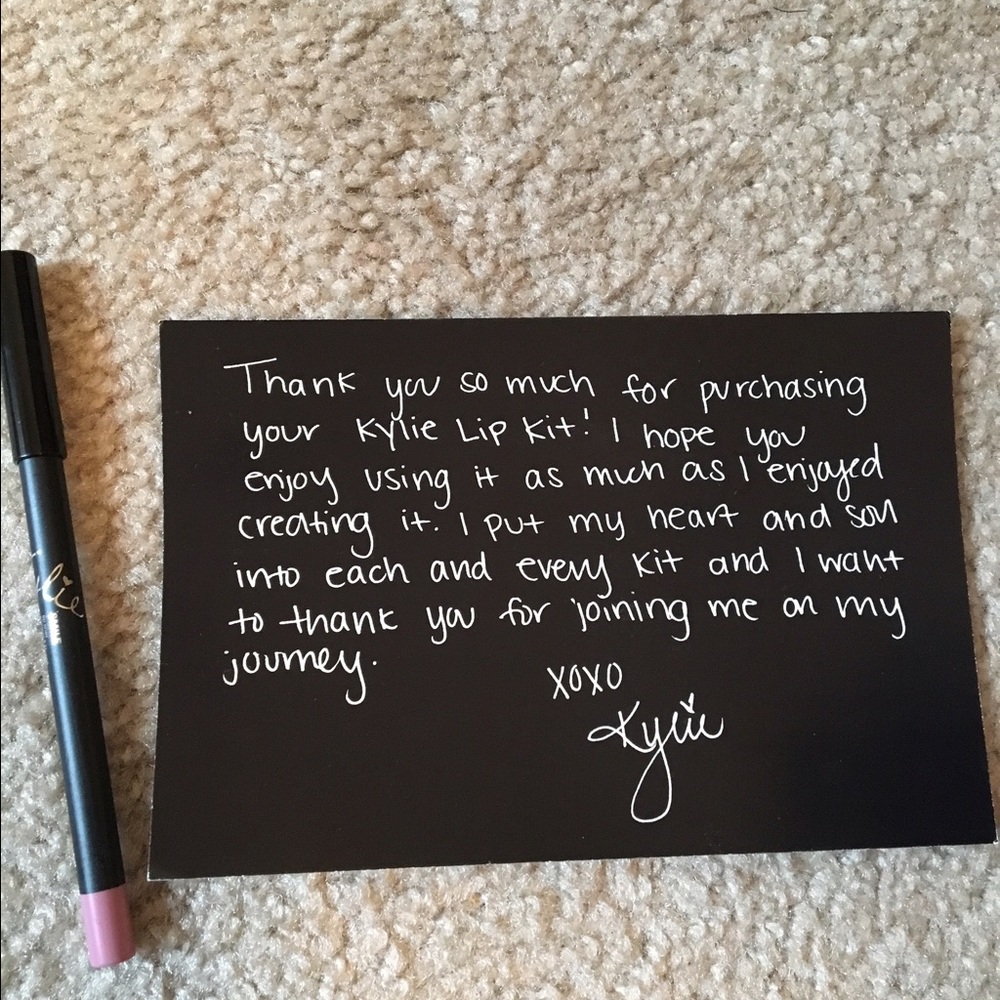 Thank you so much for purchasing
your Kylie Lip Kit! I hope you
enjoy using it as much as I enjoyed
creating it. I put my heart and soul
into each and every kit and I want
to thank you for joining me on my
journey.
XOXO
Kylie
ylie